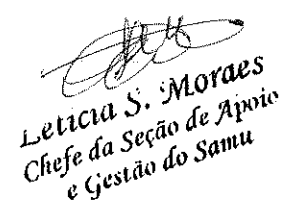 Leticia S. Moraes
Chefe da Seção de Apoio
e Gestão do Samu